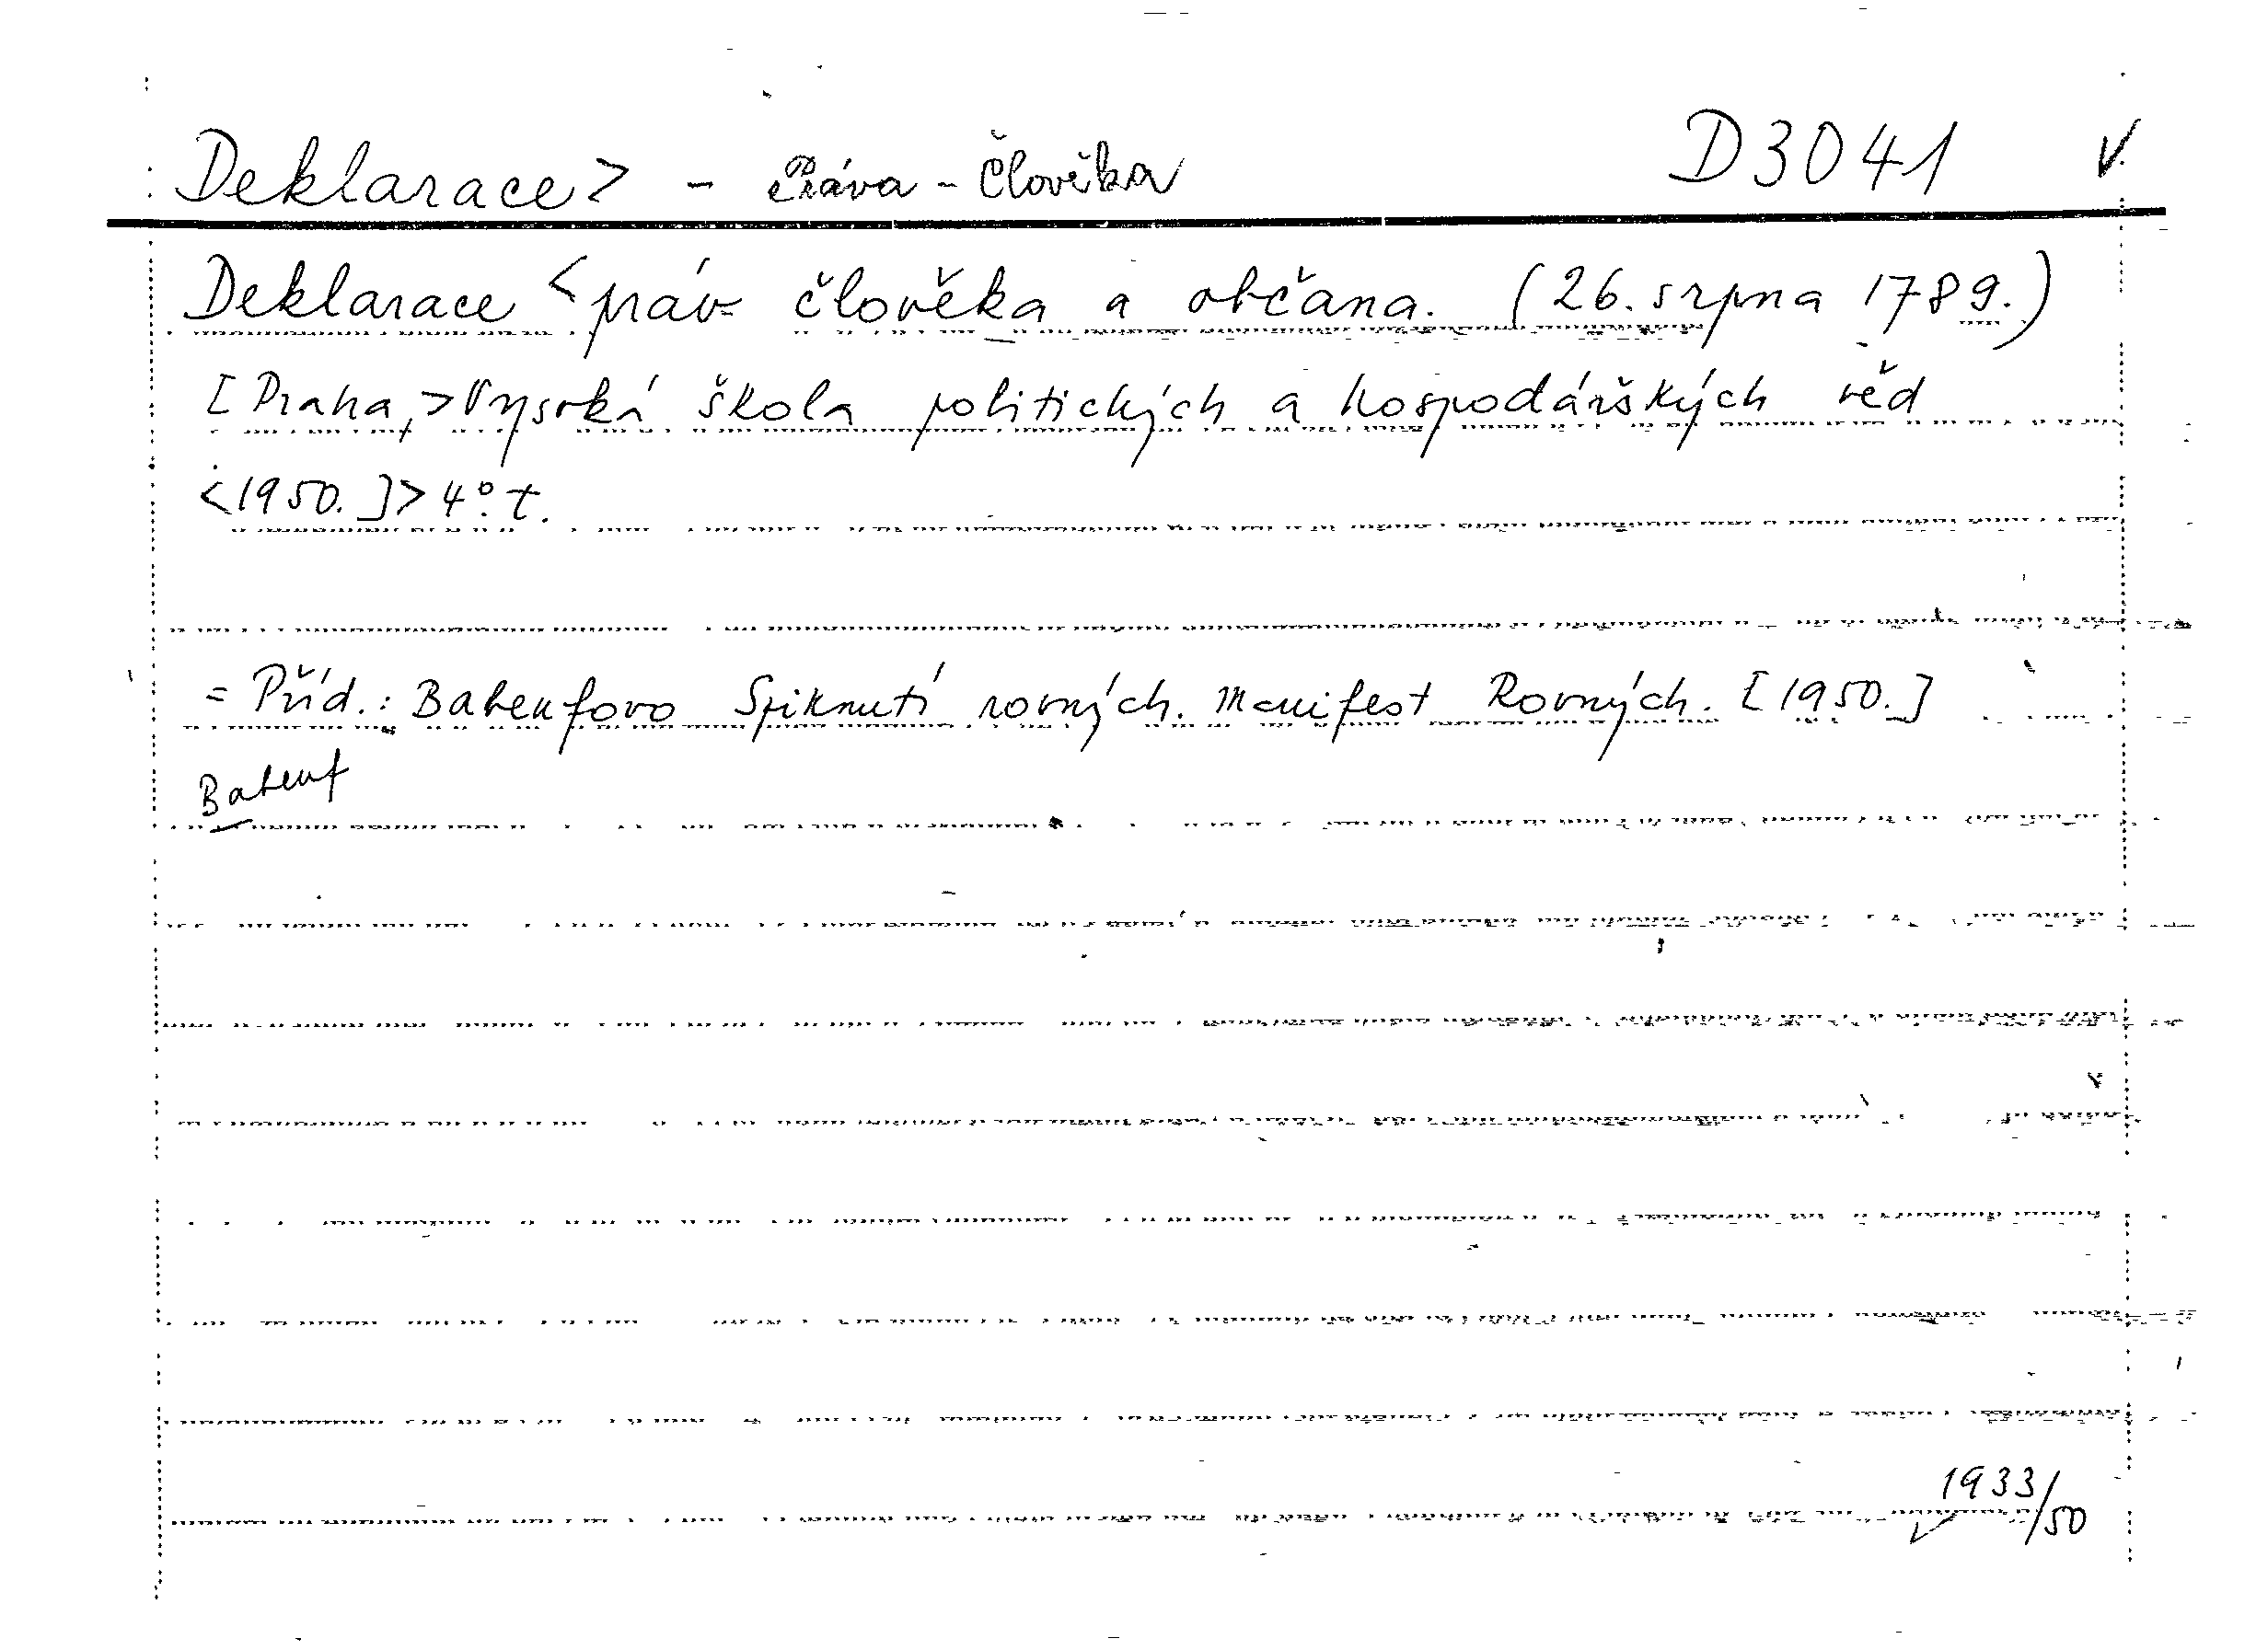 Deklarace> - Práva - Člověka D3041 V.
Deklarace <práv člověka a občana. (26. srpna 1789.)
[Praha,> Vysoká škola politických a hospodářských věd
<1950.]> 4°. t.
= Příd.: Babeufovo Spiknutí rovných. Manifest Rovných. [1950.]
Babeuf
1933/50